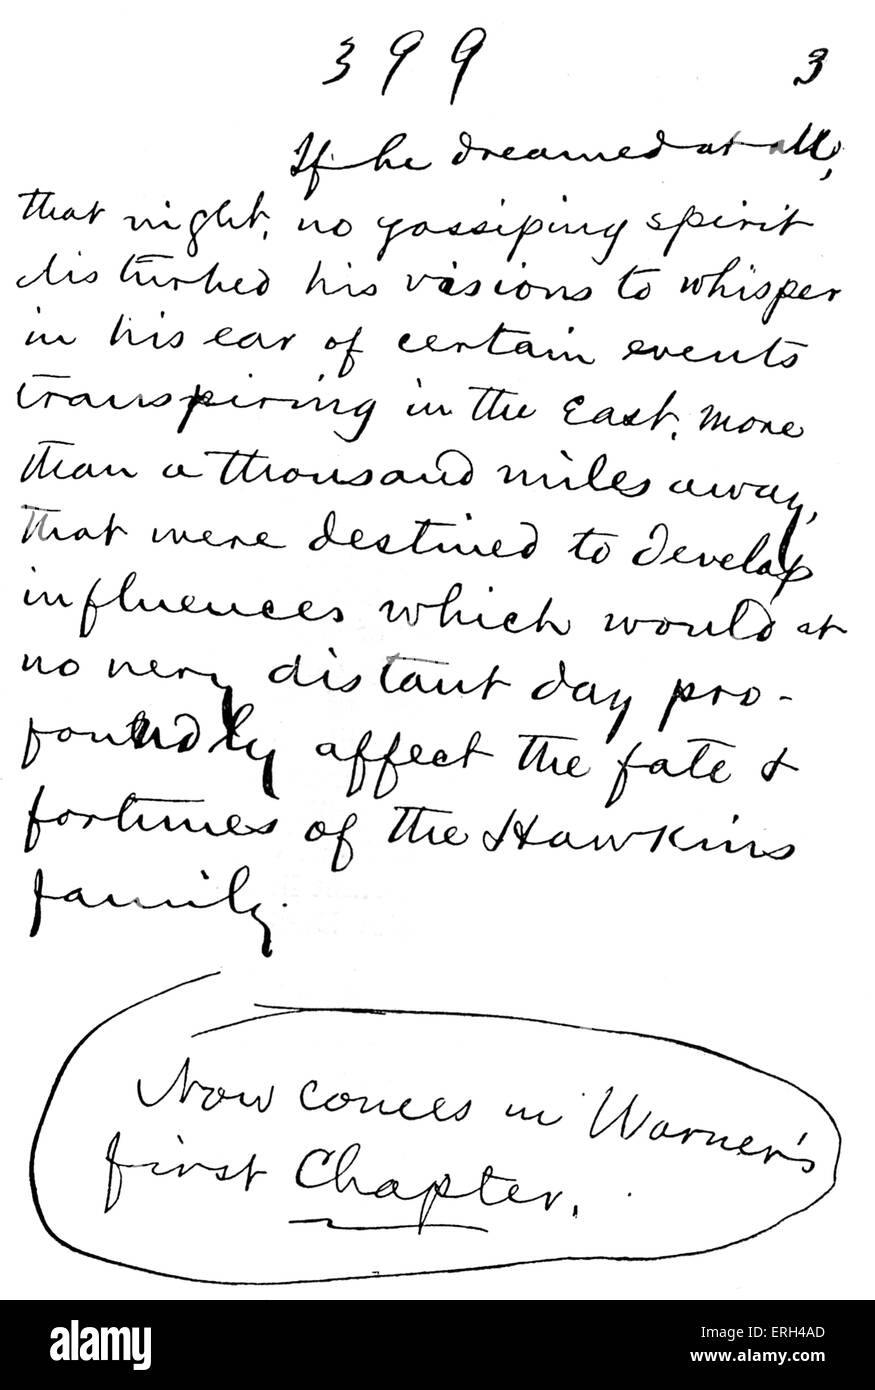 399 3
If he dreamed at all,
that night, no gossiping spirit
disturbed his visions to whisper
in his ear of certain events
transpiring in the East, more
than a thousand miles away,
that were destined to develop
influences which would at
no very distant day pro-
foundly affect the fate &
fortunes of the Hawkins
family.
Now comes in Warner's
first Chapter.
alamy
a
alamy stock photo
ERH4AD
www.alamy.com